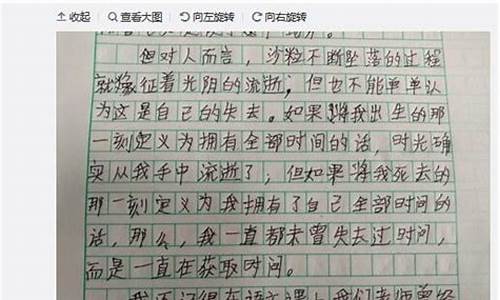 收起 查看大图 向左旋转 向右旋转
但对人而言，沙粒不断坠落的过程
就像征着光阴的流逝；但也不能单单认
为这是自己的失去。如果将我出生的那
一刻定义为拥有全部时间的话，时光确
实从我手中流逝了；但如果将我死去的
那一刻定义为我拥有了自己全部时间的
话，那么，我一直都未曾失去过时间，
而是一直在获取时间。
我还记得在语文课上我们老师曾经